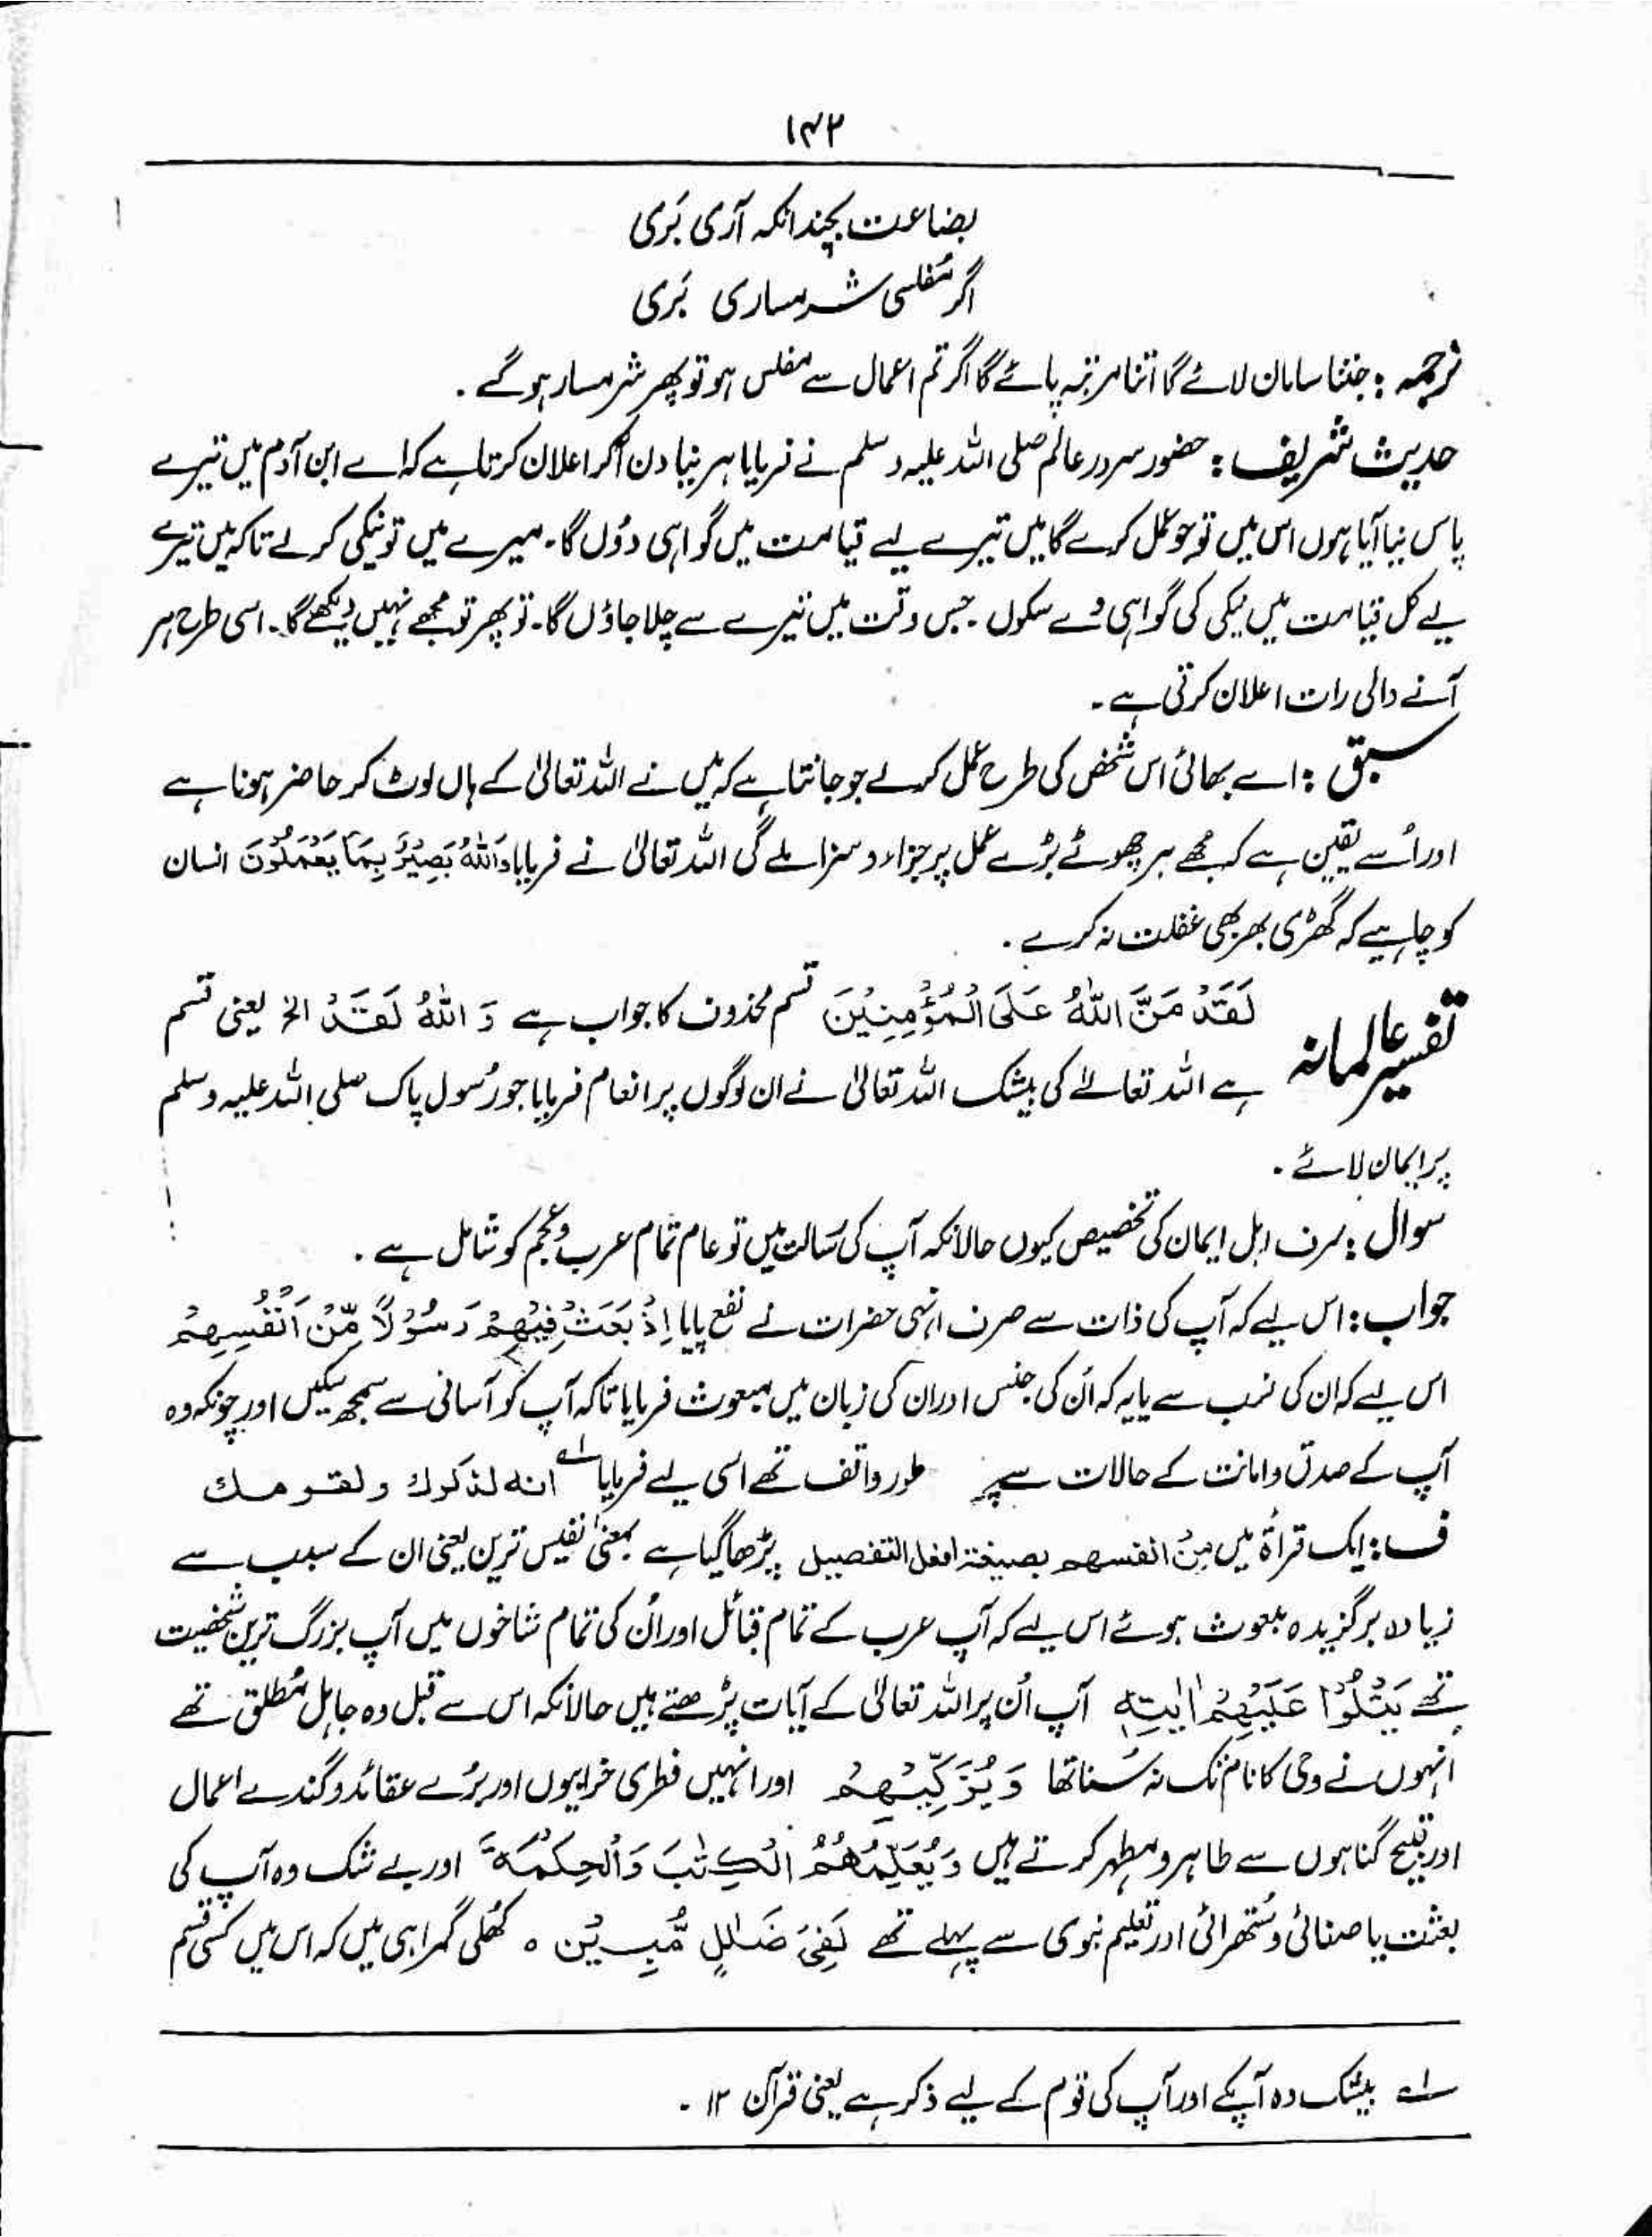 ۱۴۲
بضاعت بچندانکہ آری بَری
اگر مُفلسی شرمساری بَری
ترجمہ : جتنا سامان لائے گا اتنا مرتبہ پائے گا اگر تم اعمال سے مفلس ہو تو پھر شرمسار ہو گے ۔
حدیث شریف : حضور سرور عالم صلی اللہ علیہ وسلم نے فرمایا ہر نیا دن آکر اعلان کرتا ہے کہ اے ابن آدم میں تیرے
پاس نیا آیا ہوں اس میں تو جو عمل کرے گا میں تیرے لیے قیامت میں گواہی دوُں گا۔ میرے میں تو نیکی کر لے تاکہ میں تیرے
لیے کل قیامت میں نیکی کی گواہی دے سکوں ۔ جس وقت میں تیرے سے چلا جاؤں گا۔ تو پھر تو مجھے نہیں دیکھے گا۔ اسی طرح ہر
آنے والی رات اعلان کرتی ہے ۔
سبق : اے بھائی اس شخص کی طرح عمل کرلے جو جانتا ہے کہ میں نے اللہ تعالیٰ کے ہاں لوٹ کر حاضر ہونا ہے
اور اُسے یقین ہے کہ مجھے ہر چھوٹے بڑے عمل پر جزاء و سزا ملے گی اللہ تعالیٰ نے فرمایا وَاللّٰهُ بَصِيْرٌۢ بِمَا يَعْمَلُوْنَ انسان
کو چاہیے کہ گھڑی بھر بھی غفلت نہ کرے ۔
تفسیر عالمانہ لَقَدْ مَنَّ اللّٰهُ عَلَى الْمُؤْمِنِيْنَ قسم محذوف کا جواب ہے وَ اللّٰهُ لَقَدْ الخ یعنی قسم
ہے اللہ تعالےٰ کی بیشک اللہ تعالیٰ نے ان لوگوں پر انعام فرمایا جو رُسول پاک صلی اللہ علیہ وسلم
پر ایمان لائے ۔
سوال : صرف اہل ایمان کی تخصیص کیوں حالانکہ آپ کی رسالت میں تو عام تمام عرب و عجم کو شامل ہے ۔
جواب : اس لیے کہ آپ کی ذات سے صرف انہی حضرات نے نفع پایا اِذْ بَعَثَ فِيْهِمْ رَسُوْلًا مِّنْ اَنْفُسِهِمْ
اس لیے کہ ان کی نسب سے یا یہ کہ اُن کی جنس اور ان کی زبان میں مبعوث فرمایا تاکہ آپ کو آسانی سے سمجھ سکیں اور چونکہ وہ
آپ کے صدق و امانت کے حالات سے طور واقف تھے اسی لیے فرمایا ۱ے انه لذكرلك ولقومك
ف : ایک قرأۃ میں مِنْ انفسهم بصیغۃ افعل التفضیل پڑھا گیا ہے بمعنیٰ نفیس ترین یعنی ان کے سبب سے
زیادہ برگزیدہ مبعوث ہوئے اس لیے کہ آپ عرب کے تمام قبائل اور اُن کی تمام شاخوں میں آپ بزرگ ترین شخصیت
تھے يَتْلُوْا عَلَيْهِمْ اٰيٰتِهٖ آپ اُن پر اللہ تعالیٰ کے آیات پڑھتے ہیں حالانکہ اس سے قبل وہ جاہل مُطلق تھے
انہوں نے وحی کا نام تک نہ سُنا تھا وَ يُزَكِّيْهِمْ اور انہیں فطری خرابیوں اور بُرے عقائد و گندے اعمال
اور قبیح گناہوں سے طاہر و مطہر کرتے ہیں وَ يُعَلِّمُهُمُ الْكِتٰبَ وَالْحِكْمَةَ اور بے شک وہ آپ کی
بعثت یا صفائی و سُتھرائی اور تعلیم نبوی سے پہلے تھے لَفِيْ ضَلٰلٍ مُّبِيْنٍ ہ کھُلی گمراہی میں کہ اس میں کسی قسم
۱ے بیشک وہ آپکے اور آپ کی قوم کے لیے ذکر ہے یعنی قرآن ۱۲ ۔